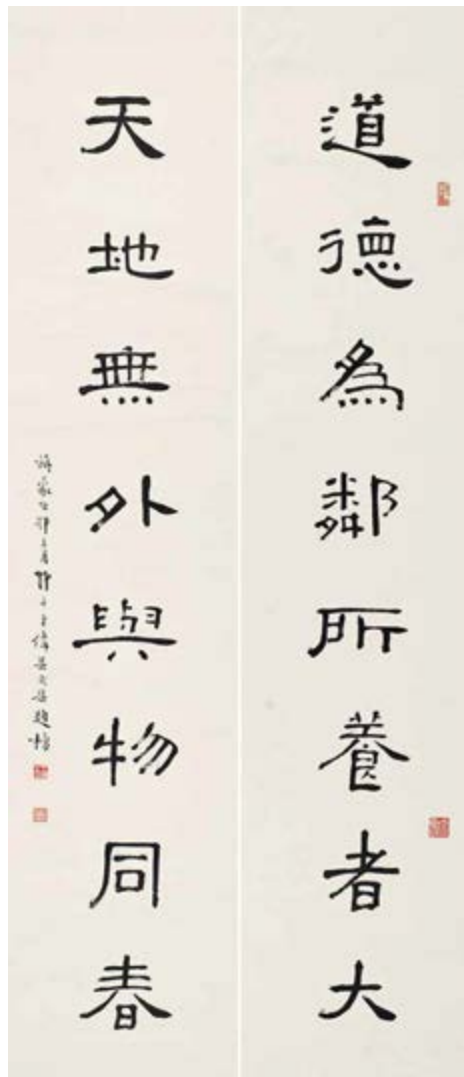 道德為鄰所養者大
天地無外與物同春